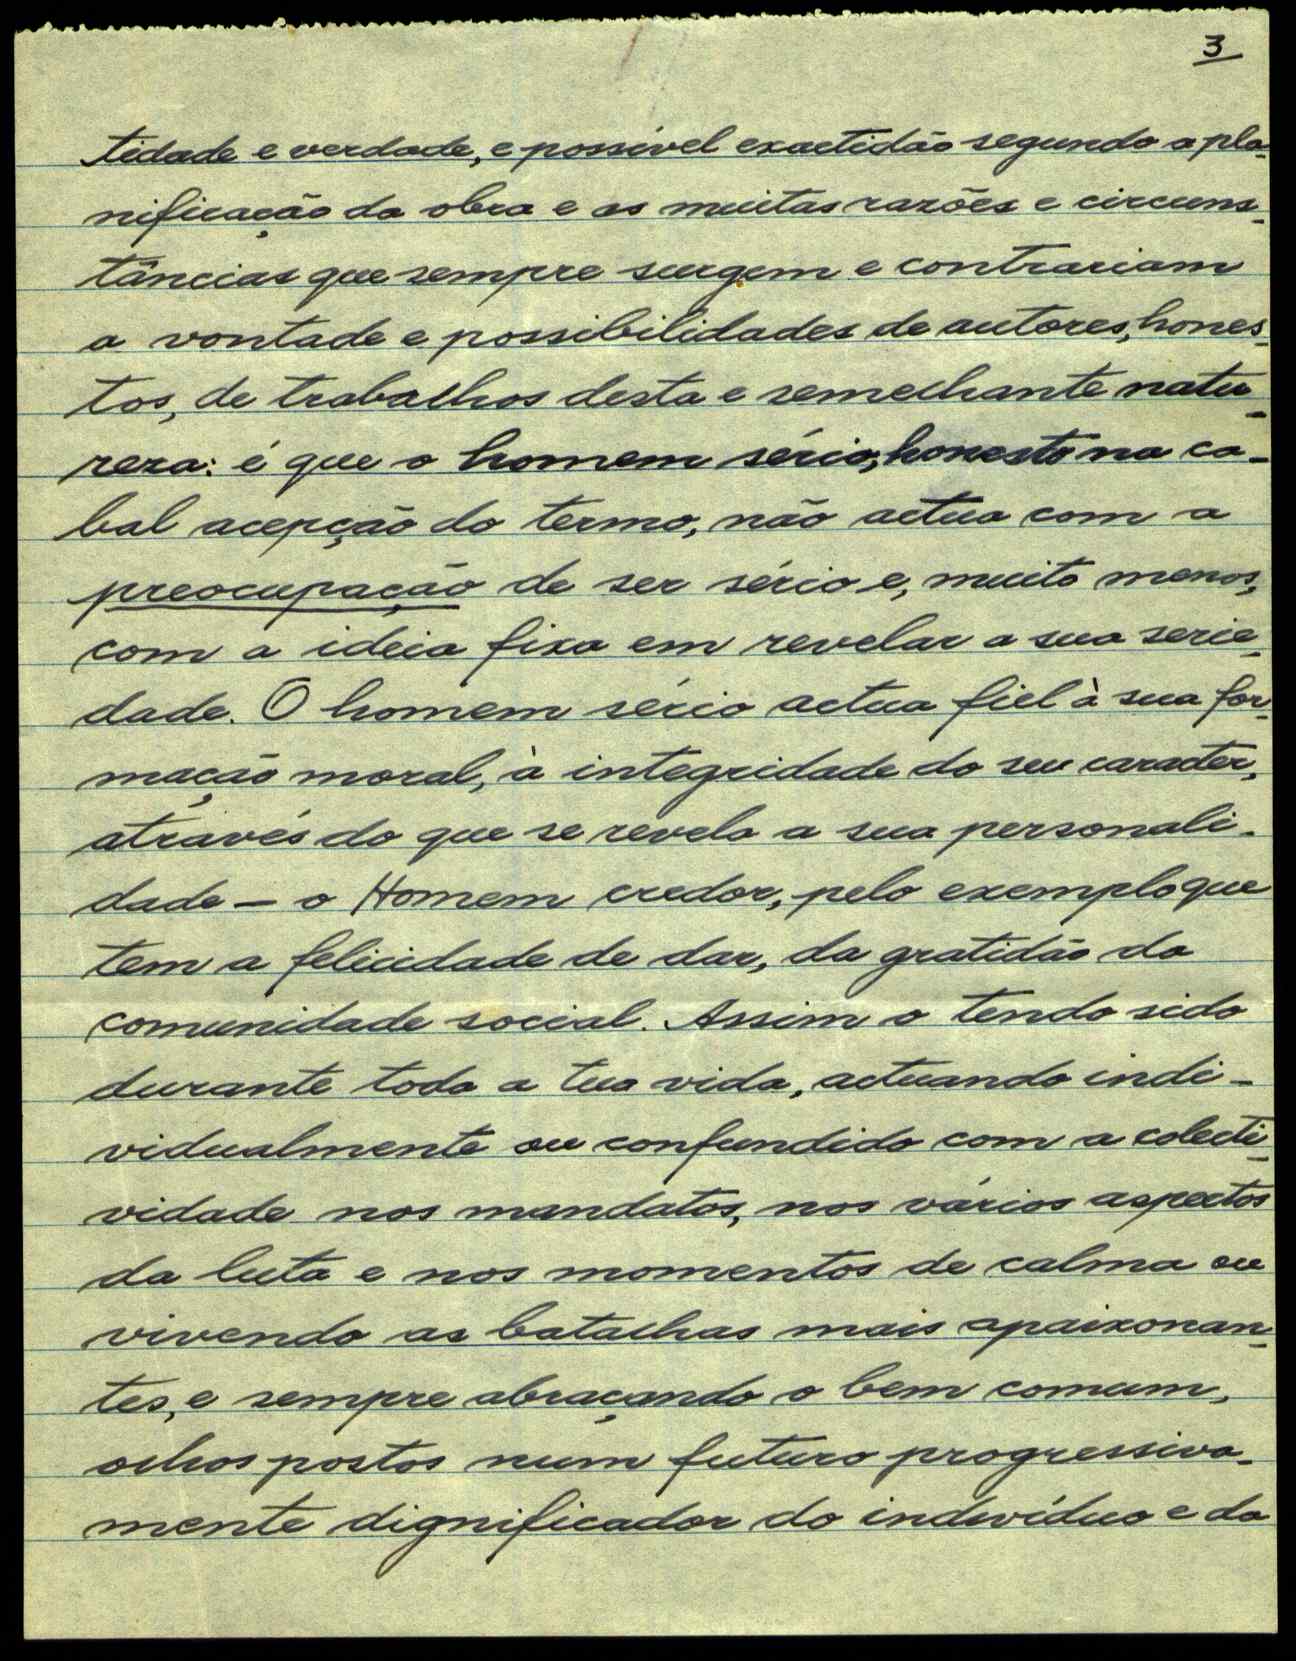 3
tidade e verdade, e possível exactidão segundo a pla-
nificação da obra e as muitas razões e circuns-
tâncias que sempre surgem e contrariam
a vontade e possibilidades de autores, hones-
tos, de trabalhos desta e semelhante natu-
reza: é que o homem sério, honesto na ca-
bal acepção do termo, não actua com a
preocupação de ser sério e, muito menos,
com a ideia fixa em revelar a sua serie-
dade. O homem sério actua fiel à sua for-
mação moral, à integridade do seu caracter,
através do que se revela a sua personali-
dade – o Homem credor, pelo exemplo que
tem a felicidade de dar, da gratidão da
comunidade social. Assim o tendo sido
durante toda a tua vida, actuando indi-
vidualmente ou confundido com a colecti-
vidade nos mandatos, nos vários aspectos
da luta e nos momentos de calma ou
vivendo as batalhas mais apaixonan-
tes, e sempre abraçando o bem comum,
olhos postos num futuro progressiva-
mente dignificador do indivíduo e da